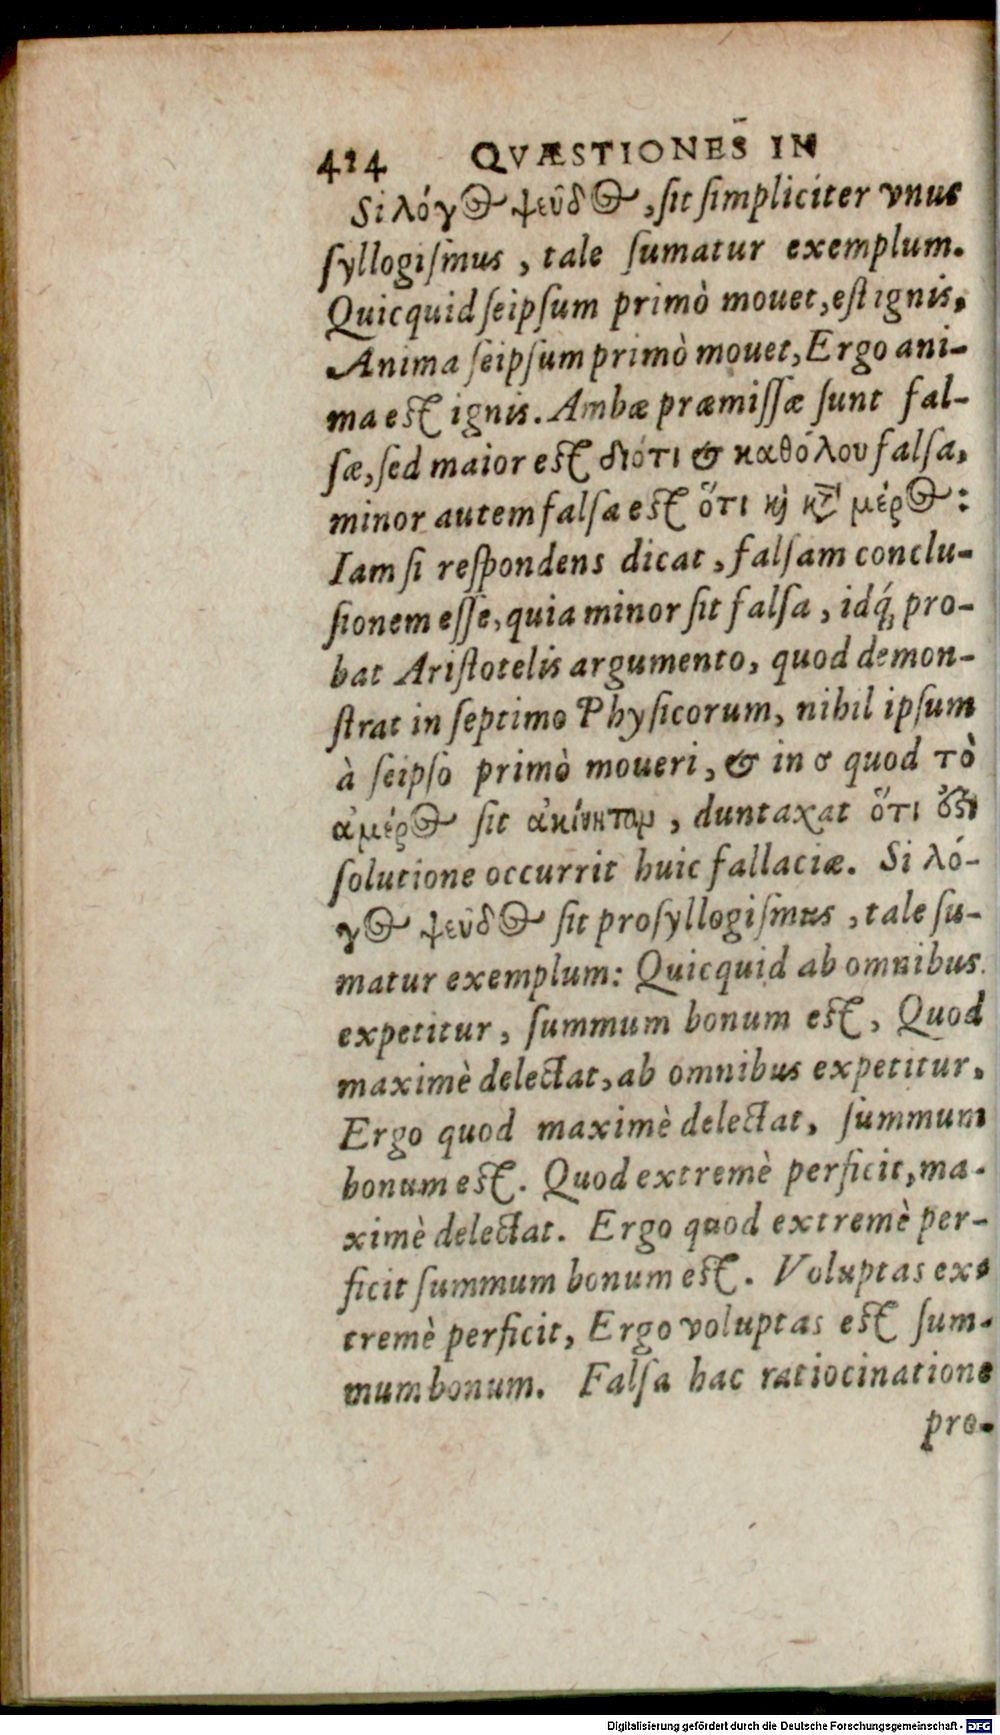 424 QVÆSTIONES IN
Si λόγος ψεῦδος, sit simpliciter vnus
syllogismus, tale sumatur exemplum.
Quicquid seipsum primò mouet, est ignis,
Anima seipsum primò mouet, Ergo ani-
ma est ignis. Ambæ præmissæ sunt fal-
sæ, sed maior est διότι & καθόλου falsa,
minor autem falsa est ὅτι καὶ κατὰ μέρος:
Iam si respondens dicat, falsam conclu-
sionem esse, quia minor sit falsa, idq́; pro-
bat Aristotelis argumento, quod demon-
strat in septimo Physicorum, nihil ipsum
à seipso primò moueri, & in 6 quod τὸ
ἀμέρος sit ἀκίνητον, duntaxat ὅτι
solutione occurrit huic fallaciæ. Si λό-
γος ψεῦδος sit prosyllogismus, tale su-
matur exemplum: Quicquid ab omnibus
expetitur, summum bonum est, Quod
maximè delectat, ab omnibus expetitur,
Ergo quod maximè delectat, summum
bonum est. Quod extremè perficit, ma-
ximè delectat. Ergo quod extremè per-
ficit summum bonum est. Voluptas ex-
tremè perficit, Ergo voluptas est sum-
mum bonum. Falsa hac ratiocinatione
pro-
Digitalisierung gefördert durch die Deutsche Forschungsgemeinschaft - DFG